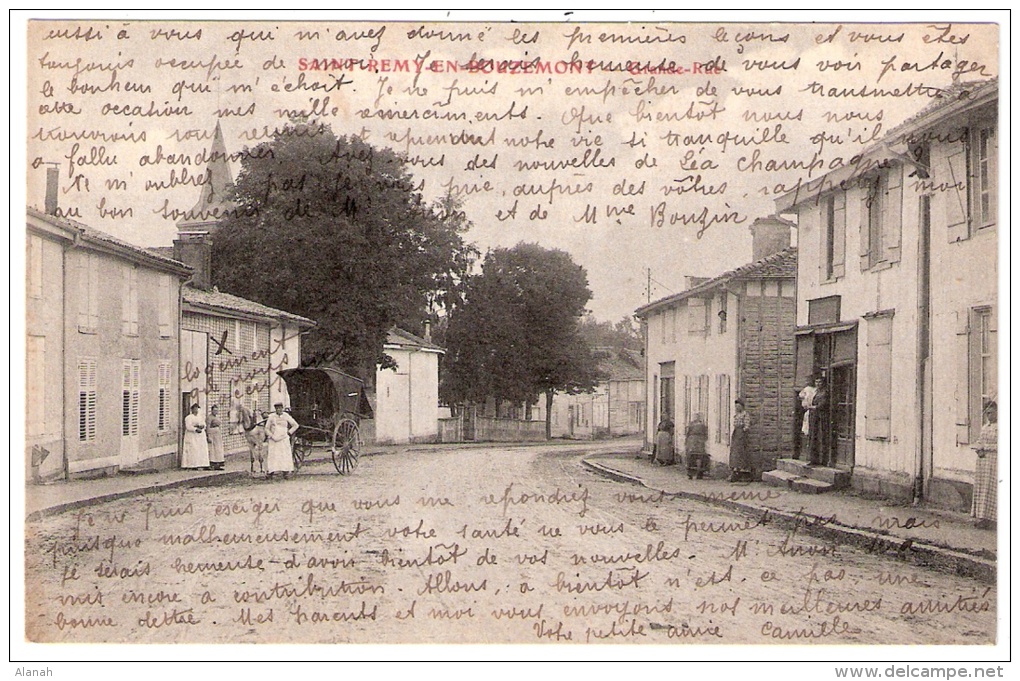 aussi à vous qui m'avez donné les premières leçons et vous êtes
SAINT-REMY-EN-BOUZEMONT — Grande-Rue
toujours occupée de moi. Je serais heureuse de vous voir partager
le bonheur qui m'échoit. Je ne puis m'empêcher de vous transmettre à
cette occasion mes mille remerciments. Que bientôt nous nous
trouvions tous réunis et reprendront notre vie si tranquille qu'il nous
a fallu abandonner. Avez-vous des nouvelles de Léa Champagne
Ne m'oubliez pas je vous prie, auprès des vôtres, rappelez moi
au bon souvenir de Mr Anon et de Mme Bouzin
X
logement
que nous
Je ne puis exiger que vous me repondiez
puisque malheureusement votre santé ne vous le permet pas, mais
je serais heureuse d'avoir bientôt de vos nouvelles. Mr Anon sera
mis encore à contribution. Allons, à bientôt n'est ce pas une
bonne dette. Mes parents et moi vous envoyons nos meilleures amitiés
Votre petite amie Camille
Alanah
www.delcampe.net